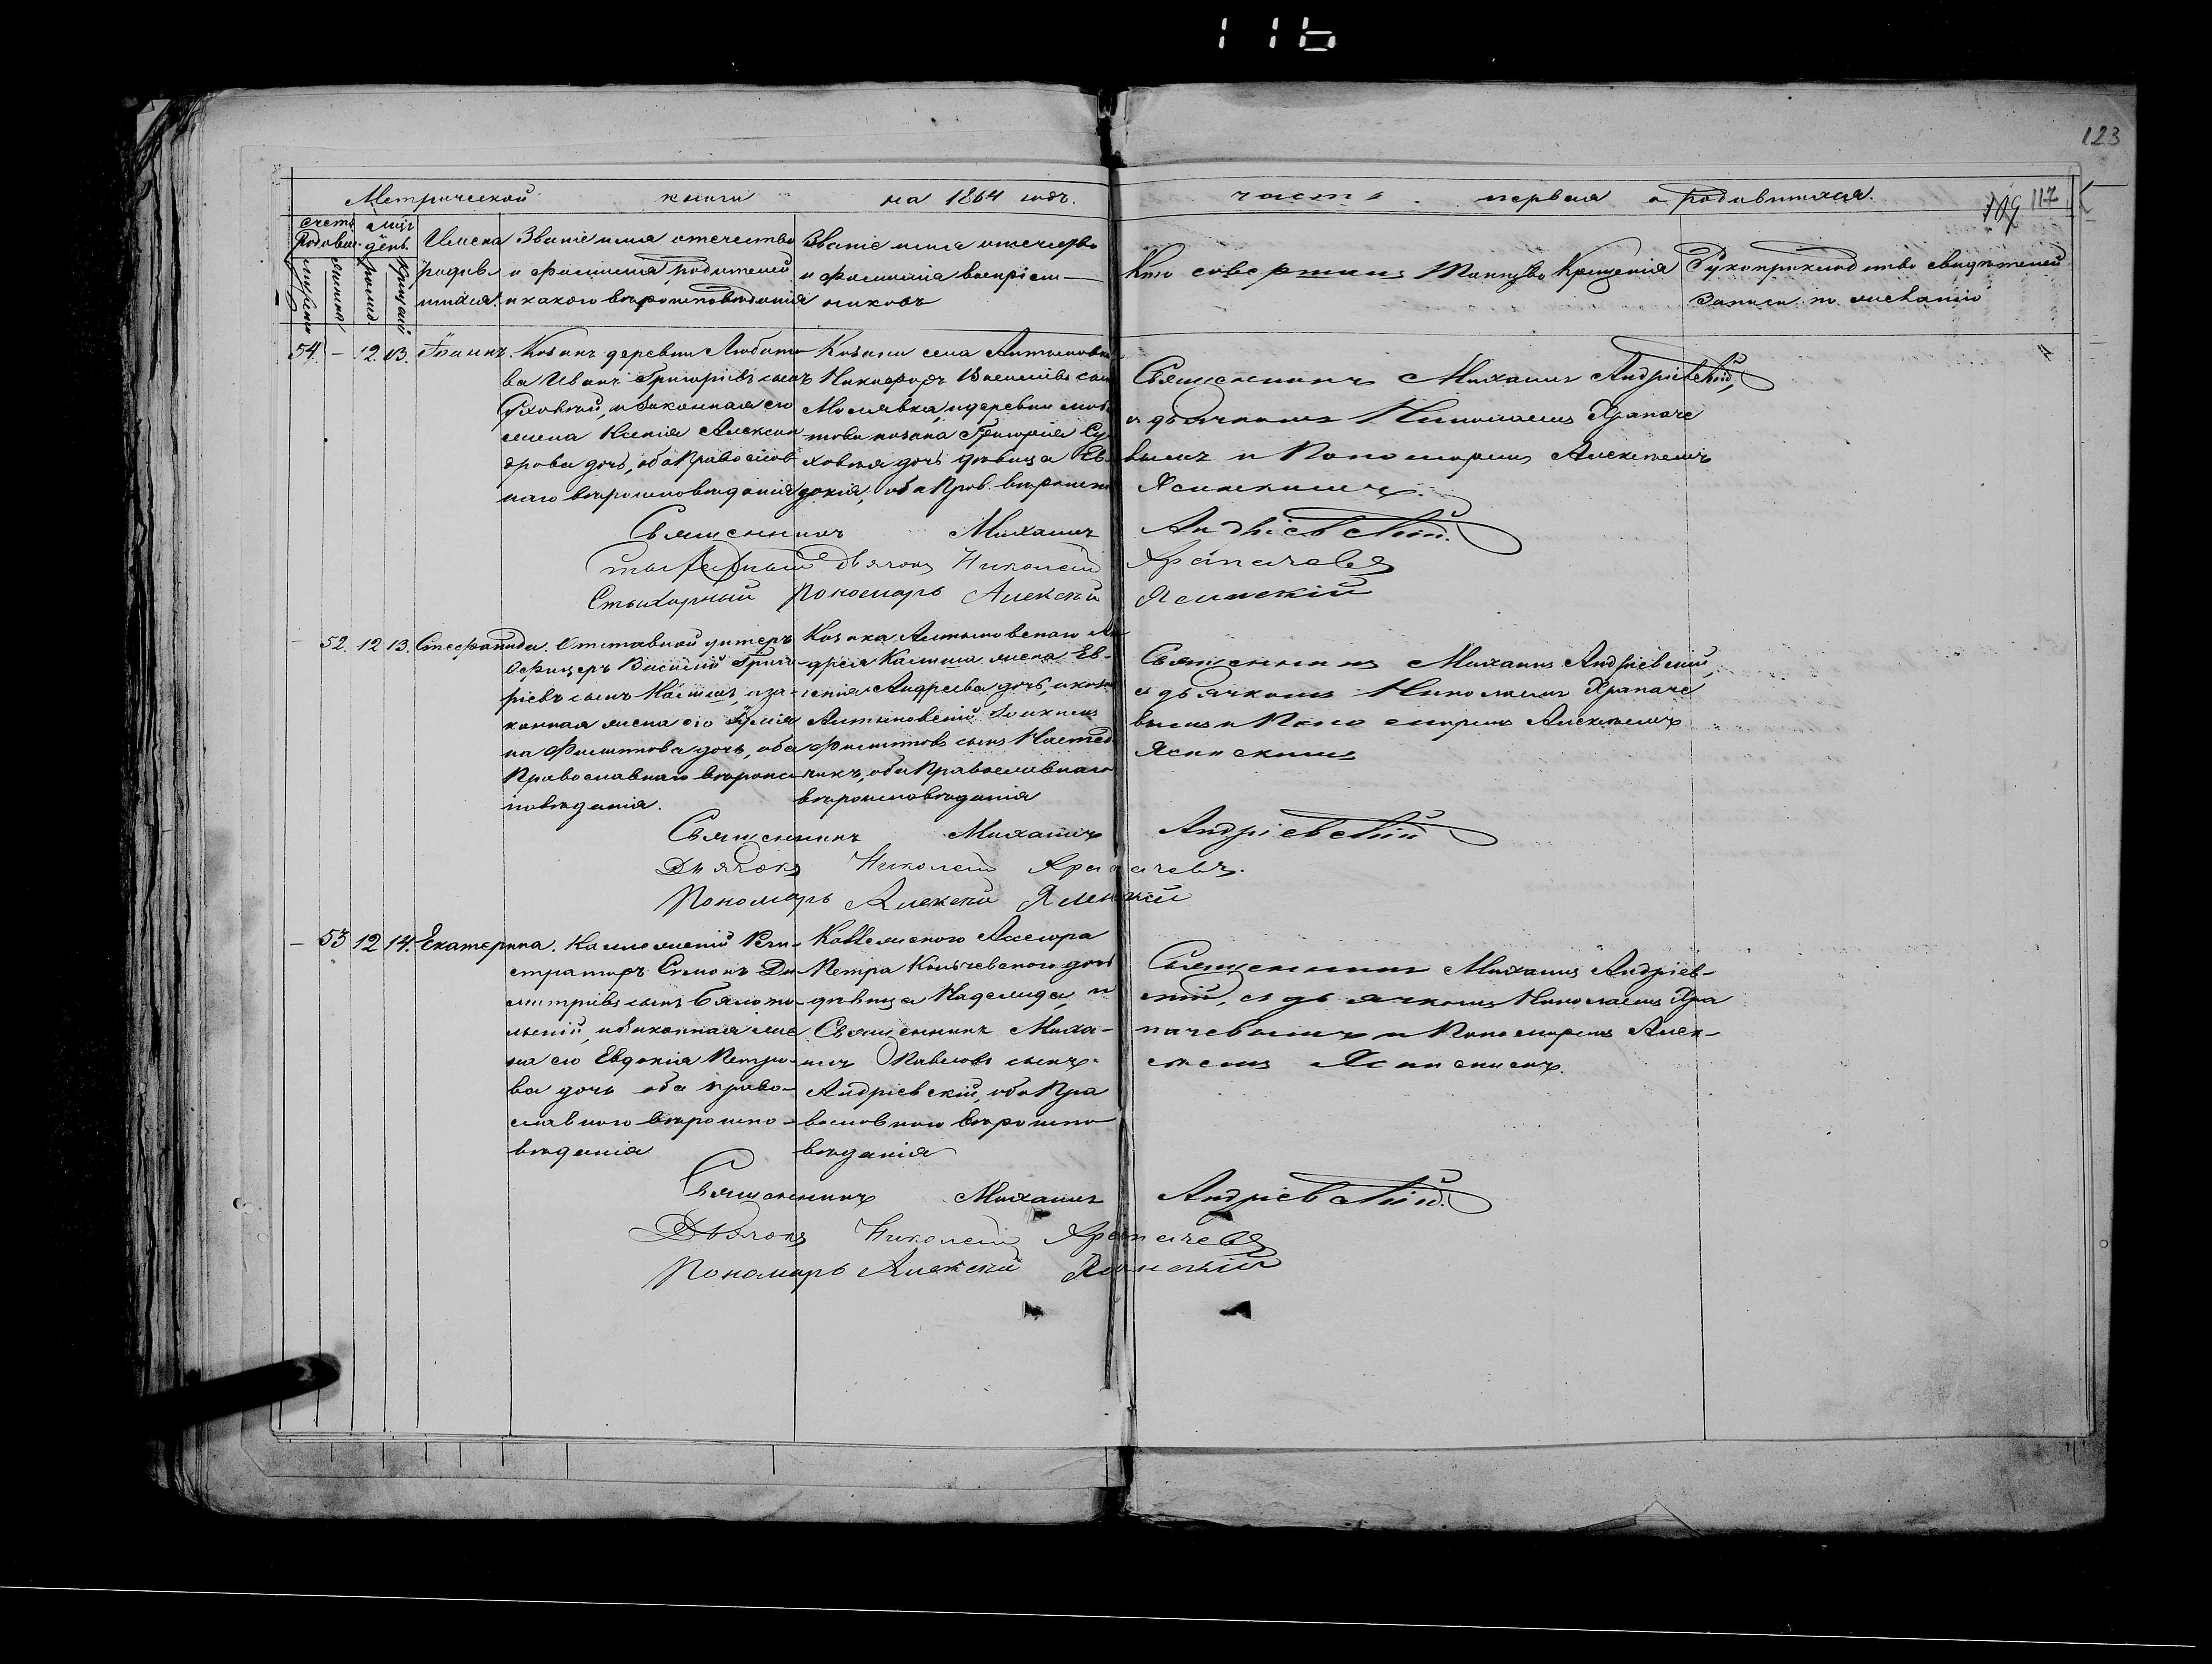 116
123
Метрической книги на 1864 годъ. часть первая о родившихся.
109 117
Счетъ родивш. Мѣс. день
мужеска женска рожд. крещенія
Имена родившихся.
Званіе имя отечество
и фамилія родителей
и какого вѣроисповѣданія
Званіе имя отечество
и фамилія воспріем-
никовъ
Кто совершилъ Таинство Крещенія
Рукоприкладство свидѣтелей
записи по желанію
54. – 12. 13. Іоаннъ.
Козакъ деревни Любито-
ва Иванъ Григоріевъ сынъ
и законная его
жена Ксенія Алексан
дрова дочь, оба Православ
наго вѣроисповѣданія
Козакъ села
Никифоръ Васильевъ сынъ
и деревни Люби
това козака Григорія Су
ховія дочь дѣвица Ев-
докія, оба Прав. вѣроиспов
Священникъ Михаилъ Андріевскій,
съ дьячкомъ Николаемъ Храпаче
вымъ и Пономаремъ Алексѣемъ
Ясинскимъ.
Священникъ Михаилъ Андріевскій.
Стихарный Дьячокъ Николай Храпачевъ
Стихарный Пономарь Алексѣй Ясинскій
– 52. 12 13. Стефанида.
Отставной унтеръ
Офицеръ Василій Григо-
ріевъ сынъ и за-
конная жена его Іулія
на Филиппова дочь, оба
Православнаго вѣроис-
повѣданія.
Козака
дрея жена Ев-
генія Андреева дочь, и козакъ
Филипповъ сынъ
оба Православнаго
вѣроисповѣданія
Священникъ Михаилъ Андріевскій,
съ дьячкомъ Николаемъ Храпаче
вымъ и Пономаремъ Алексѣемъ
Ясинскимъ
Священникъ Михаилъ Андріевскій
Дьячокъ Николай Храпачевъ.
Пономарь Алексѣй Ясинскій
– 53 12 14. Екатерина.
Коллежскій Реги-
страторъ Симонъ Ди-
митріевъ сынъ
и законная же
на его Евдокія Петро-
ва дочь оба право-
славнаго вѣроиспо-
вѣданія
Коллежскаго Ассесора
Петра дочь
дѣвица Надежда, и
Священникъ Миха-
илъ Павловъ сынъ
Андріевскій, оба Пра
вославнаго вѣроиспо
вѣданія
Священникъ Михаилъ Андріев-
скій, съ дьячкомъ Николаемъ Хра
пачевымъ и Пономаремъ Алек-
сѣемъ Ясинскимъ.
Священникъ Михаилъ Андріевскій.
Дьячокъ Николай Храпачевъ
Пономарь Алексѣй Ясинскій